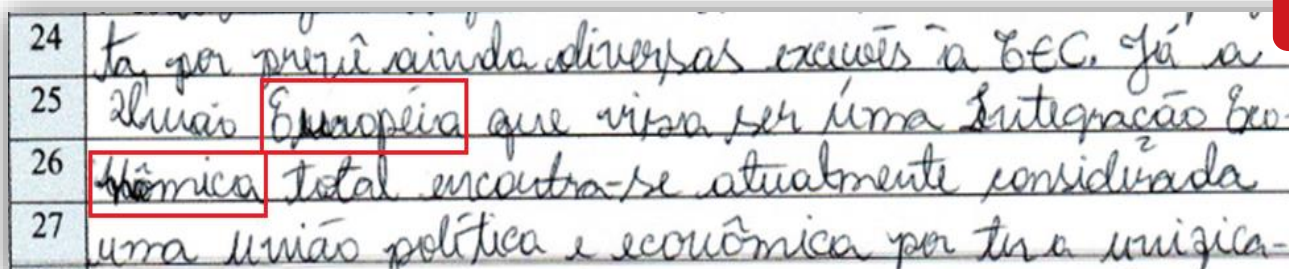 24 ta, por prevê ainda diversas exceções à TEC. Já a
25 União Européia que visa ser uma Integração Eco-
26 nômica total encontra-se atualmente considerada
27 uma união política e econômica por ter a unifica-